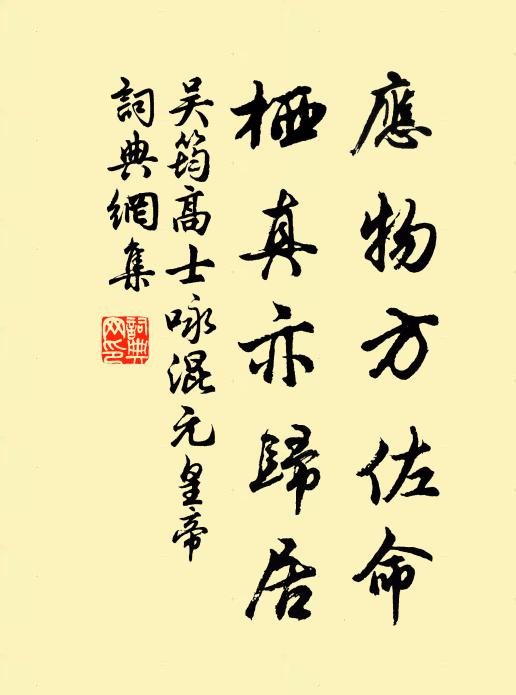 應物方佐命
栖真亦歸居
吴筠高士咏混元皇帝
詞典網集
詞典網印